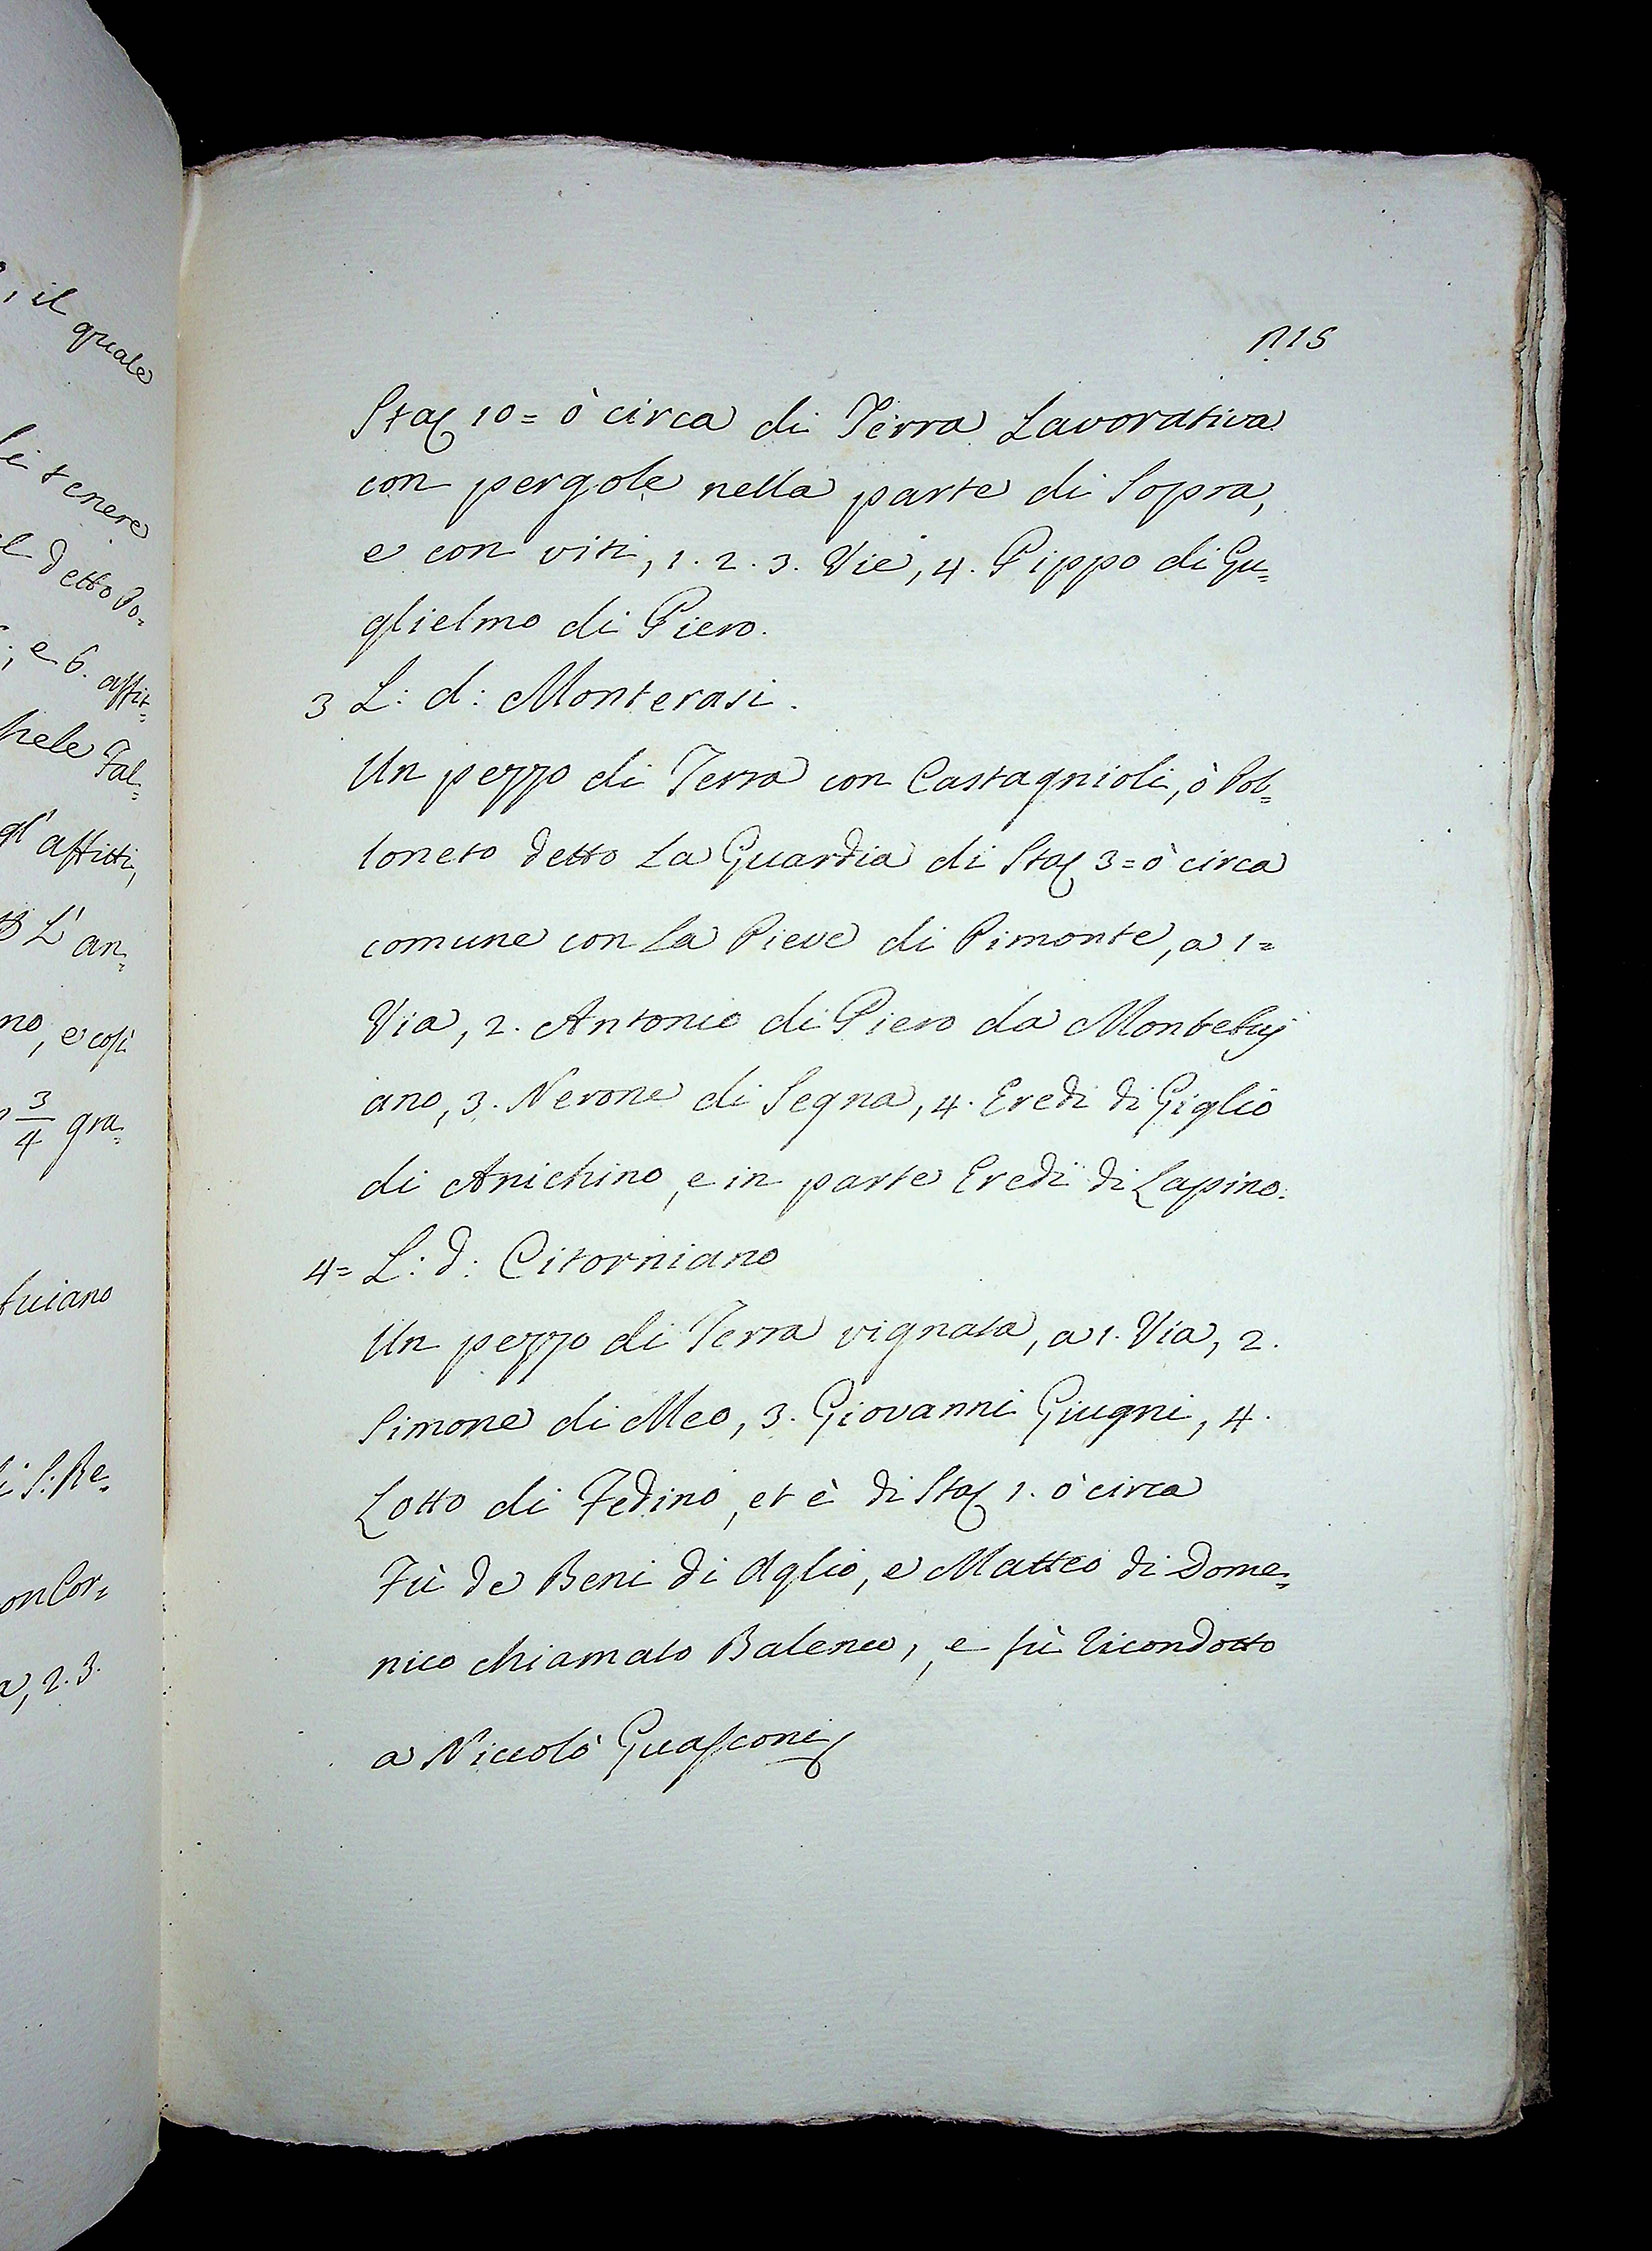 , il quale
di tenere
detto Po=
; e 6. affit=
hele Fal=
gl'affitti,
L'an=
no, e così
3/4 gra=
fuiano
di S: Re=
on Cor=
a, 2. 3.
n15
Staς 10= ò circa di Terra Lavorativa
con pergole nella parte di Sopra,
e con viti, 1. 2. 3. Vie, 4. Pippo di Gu=
glielmo di Piero.
3 L: d: Monterasi.
Un pezzo di Terra con Castagnioli, ò Pol=
loneto detto La Guardia di Staς 3= ò circa
comune con La Pieve di Pimonte, a 1=
Via, 2. Antonio di Piero da Montefuj
ano, 3. Nerone di Segna, 4. Eredi di Giglio
di Anichino, e in parte Eredi di Lapino.
4= L: d: Citorniano
Un pezzo di Terra vignata, a 1. Via, 2.
Simone di Meo, 3. Giovanni Giugni, 4.
Lotto di Fedino, et è di Staς 1. ò circa
Fù de Beni di Aglio, e Matteo di Dome=
nico chiamato Baleneo, e fù ricondotto
a Niccolò Guasconi